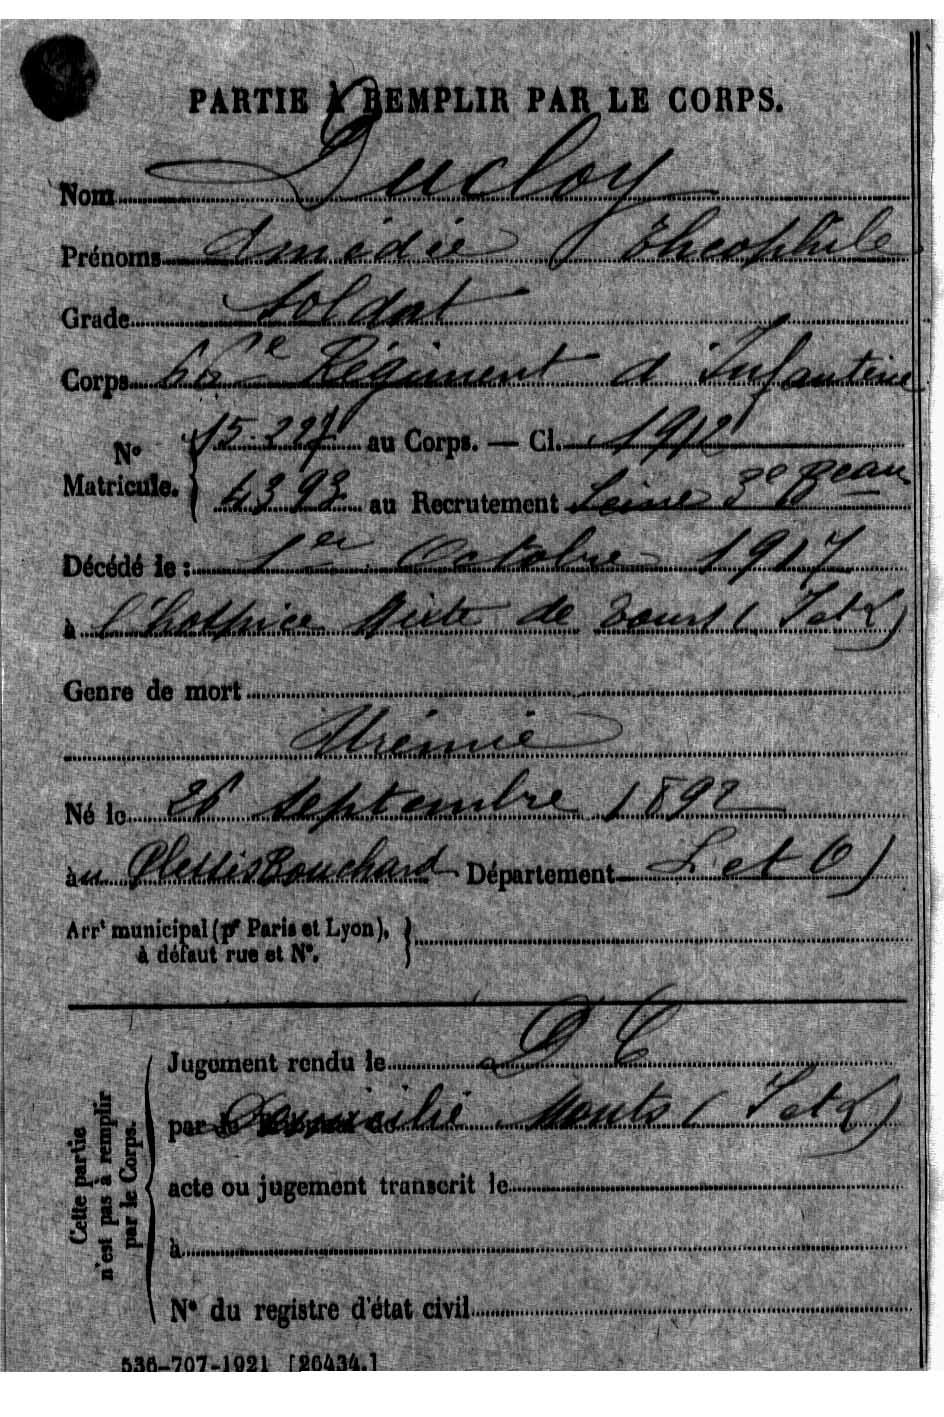 PARTIE À REMPLIR PAR LE CORPS.
Nom Ducloy
Prénoms Amédée Théophile
Grade Soldat
Corps 66e Régiment d'Infanterie
No Matricule. { 15 227 au Corps. — Cl. 1912
4393 au Recrutement Seine 3e Beau
Décédé le : 1er Octobre 1917
à l'hospice Mixte de Tours (I et L)
Genre de mort
Urémie
Né le 26 septembre 1892
au Plessis Bouchard Département S et O)
Arrt municipal (pr Paris et Lyon),
à défaut rue et No. }
Cette partie n'est pas à remplir par le Corps.
Jugement rendu le D C
par le Tribunal de Domicilié Monts (I et L)
acte ou jugement transcrit le
à
No du registre d'état civil
536-707-1921 [26434.]